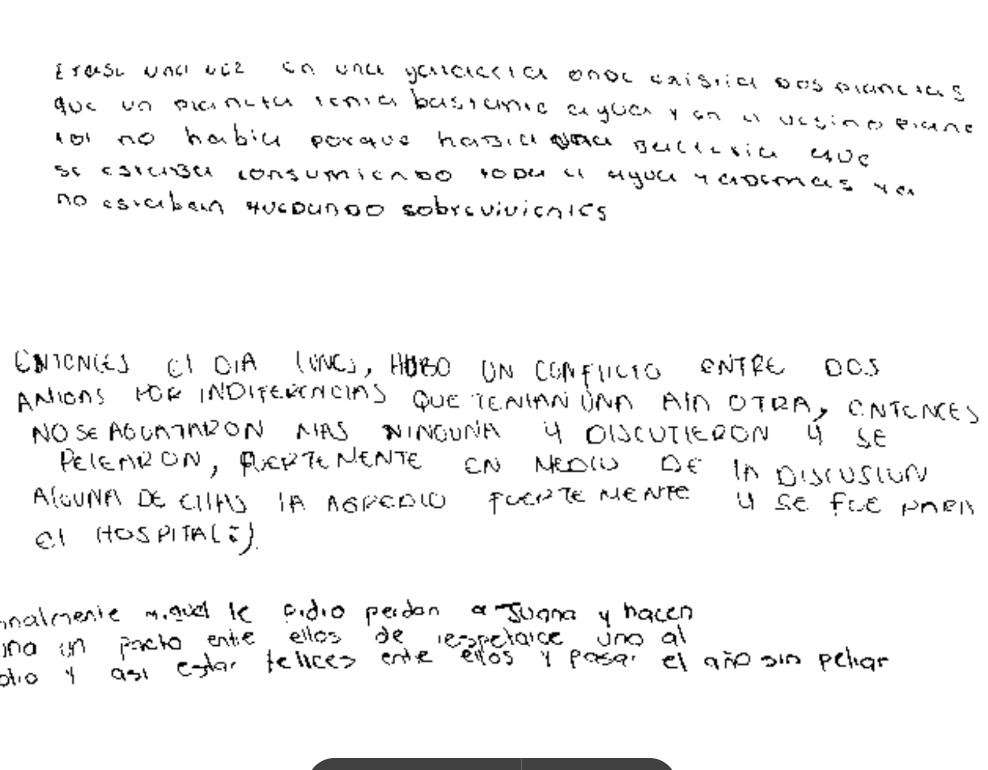 Erase una vez en una galaccia onde existia dos planetas
que un planeta tenia bastante agua y en el vesino plane
tot no habia porque habia una bacteria que
se estaba consumiendo toda el agua y ademas ya
no estaban quedando sobrevivientes
ENTONCES El DIA LUNES, HUBO UN CONFlICTO ENTRE DOS
AMIGAS POR INDIFERENCIAS QUE TENIAN UNA A lA OTRA, ENTONCES
NO SE AGUATARON MAS NINGUNA Y DISCUTIERON Y SE
PElEARON, FUERTEMENTE EN MEDIO DE lA DISCUSION
AlGUNA DE EllAS lA AGREDIO FUERTEMENTE Y SE FUE PARA
El HOSPITAL
nalmente miguel le pidio perdon a Juana y hacen
una un pacto ente ellos de respetarce uno al
otro y asi estar felices ente ellos y pasar el año sin peliar